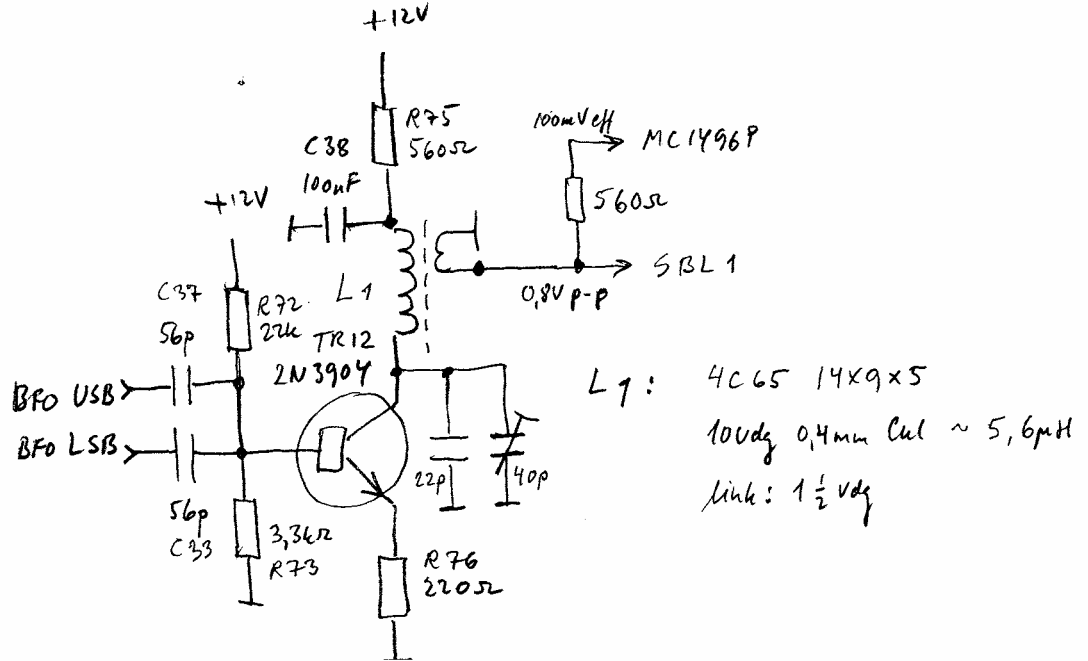 +12V
R75
560Ω
C38
100nF
100mVeff
MC1496P
560Ω
+12V
SBL1
0,8V p-p
C37
56p
R72
22k
L1
TR12
2N3904
BFO USB
BFO LSB
22p
40p
56p
C33
3,3kΩ
R73
R76
220Ω
L1: 4C65 14x9x5
10vdg 0,4mm CuL ~ 5,6μH
link: 1 1/2 vdg